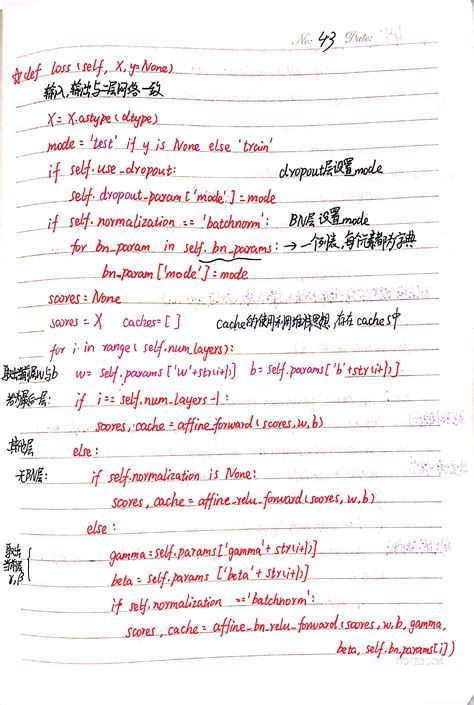 No: 43 Date:
☆def loss (self, X, y=None)
输入,输出与二层网络一致
X = X.astype (dtype)
mode = 'test' if y is None else 'train'
if self.use_dropout: dropout层设置mode
self.dropout_param ['mode'] = mode
if self.normalization == 'batchnorm': BN层设置mode
for bn_param in self.bn_params: → 一个列表,每个元素都为字典
bn_param ['mode'] = mode
scores = None
scores = X caches = [ ] cache的使用 存在caches中
for i in range (self.num_layers):
取出当前层w与b w = self.params ['W'+str(i+1)] b = self.params ['b'+str(i+1)]
若为最后一层: if i == self.num_layers-1:
scores, cache = affine_forward (scores, w, b)
其他层 else:
无BN层: if self.normalization is None:
scores, cache = affine_relu_forward (scores, w, b)
else:
取出当前层γ,β gamma = self.params ['gamma'+ str(i+1)]
beta = self.params ['beta'+ str(i+1)]
if self.normalization == 'batchnorm':
scores, cache = affine_bn_relu_forward (scores, w, b, gamma,
beta, self.bn_params[i])
NOTEBOOK